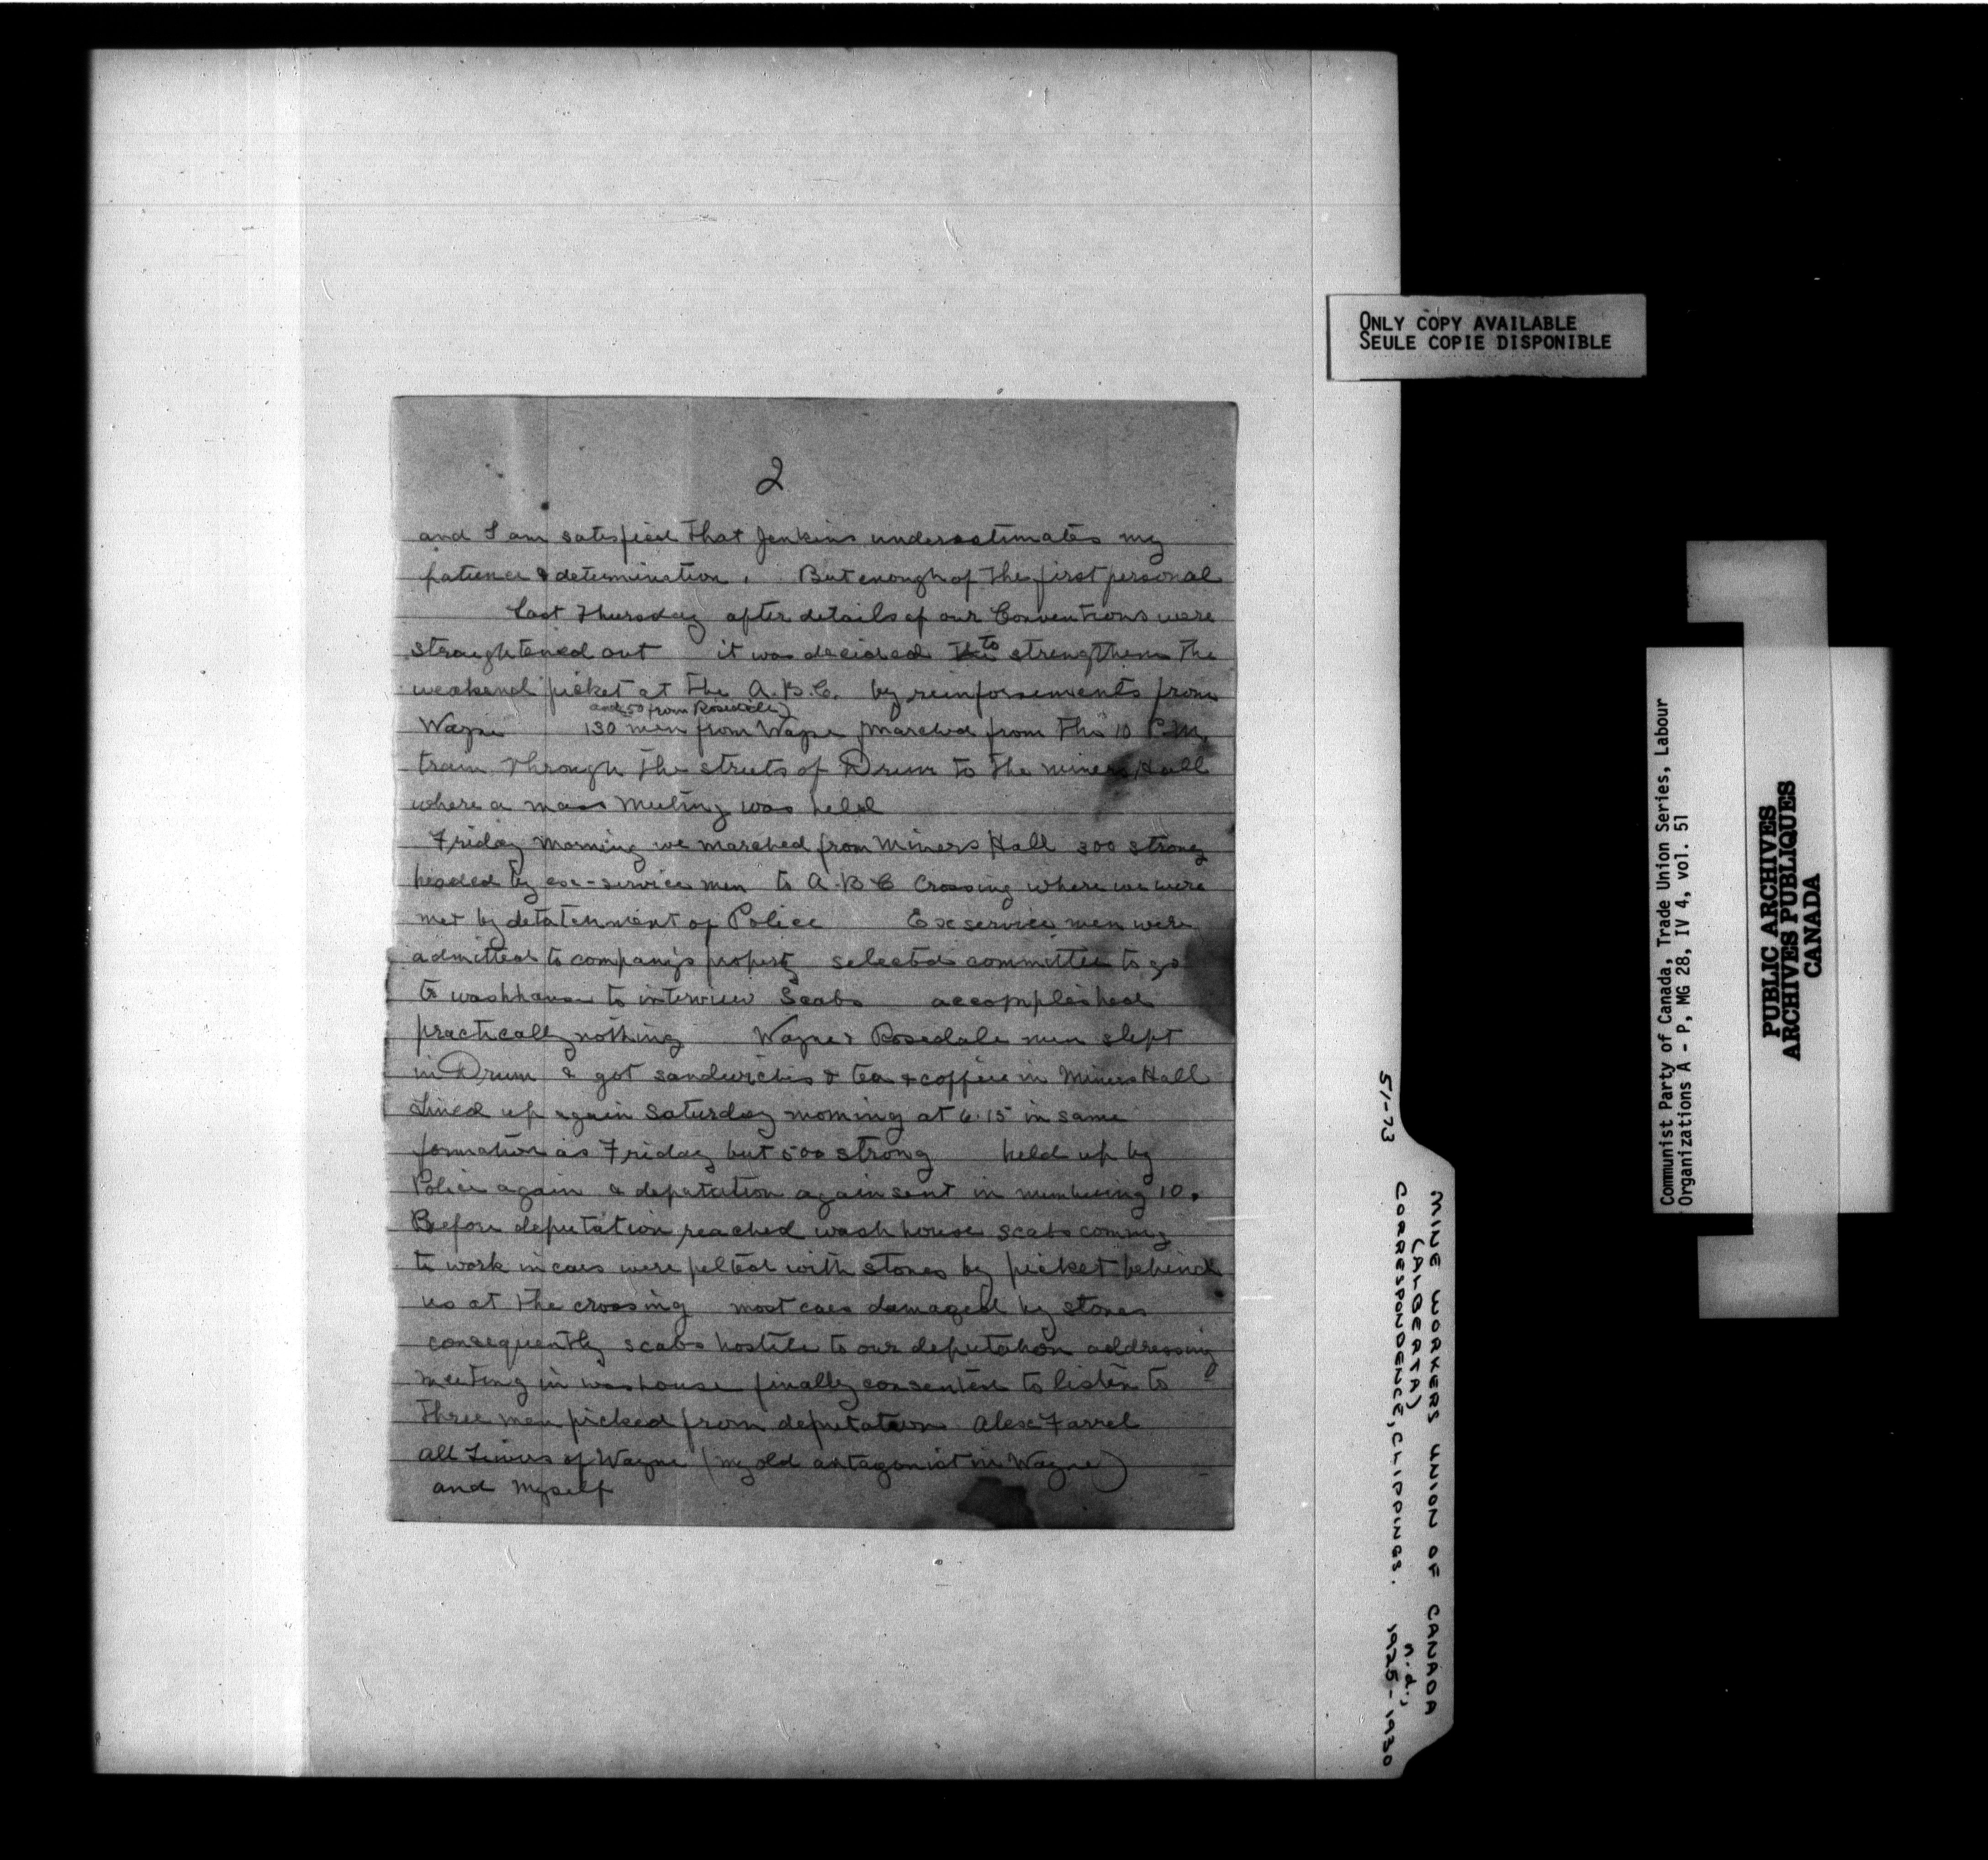 2
and I am satisfied that Jenkins underestimates my
patience & determination. But enough of the first personal
Last Thursday after details of our Conventions were
straightened out it was decided to strengthen the
weakend picket at the A.B.C. by reinforsements from
and 50 from Rosedale
Wayne 130 men from Wayne marched from the 10 P.M.
train through the streets of Drum to the miners Hall
where a mass meeting was held
Friday morning we marched from Miners Hall 300 strong
headed by ex-service men to A.B.C Crossing where we were
met by detatchment of Police Ex service men were
admitted to company's property selected committee to go
to washhouse to interview Scabs accomplished
practically nothing Wayne & Rosedale men slept
in Drum & got sandwiches & tea & coffee in Miners Hall
Lined up again Saturday morning at 6.15 in same
formation as Friday but 500 strong held up by
Police again & deputation again sent in numbering 10.
Before deputation reached wash house scabs coming
to work in cars were pelted with stones by picket behind
us at the crossing most cars damaged by stones
consequently scabs hostile to our deputation addressing
meeting in washouse finally consented to listen to
three men picked from deputation Alex Farrel
of Wayne (my old antagonist in Wayne)
and myself
ONLY COPY AVAILABLE
SEULE COPIE DISPONIBLE
Communist Party of Canada, Trade Union Series, Labour
Organizations A - P, MG 28, IV 4, vol. 51
PUBLIC ARCHIVES
ARCHIVES PUBLIQUES
CANADA
51-73
MINE WORKERS UNION OF CANADA
(ALBERTA)
CORRESPONDENCE, CLIPPINGS. n.d., 1925-1930